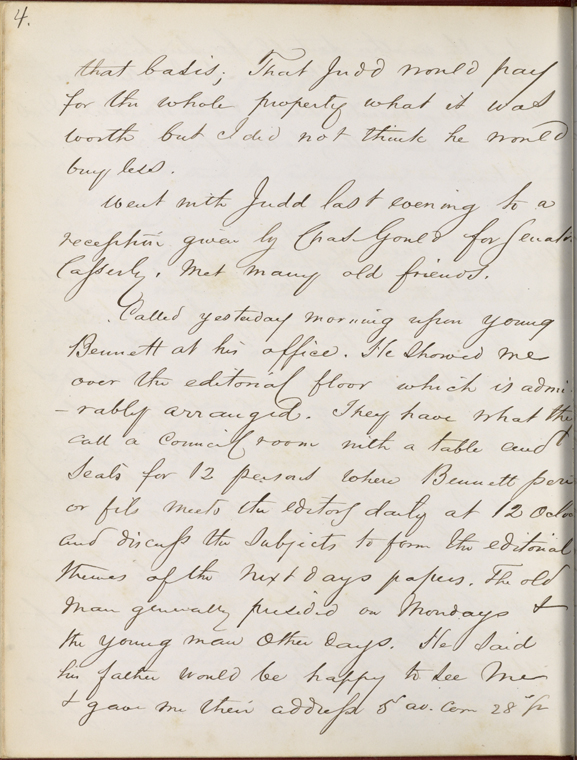 4.
that basis; That Judd would pay
for the whole property what it was
worth but I did not think he would
buy less.
Went with Judd last evening to a
reception given by Chas Gould for Senator
Casserly. Met many old friends.
Called yesterday morning upon young
Bennett at his office. He showed me
over the editorial floor which is admi-
-rably arranged. They have what they
call a Council room with a table and
seats for 12 persons where Bennett pere
or fils meets the editors daily at 12 Oclo
and discuss the subjects to form the editorial
themes of the next days papers. The old
man generally presided on Mondays &
the young man other days. He said
his father would be happy to see me
& gave me their address 5 av. cor 28" St